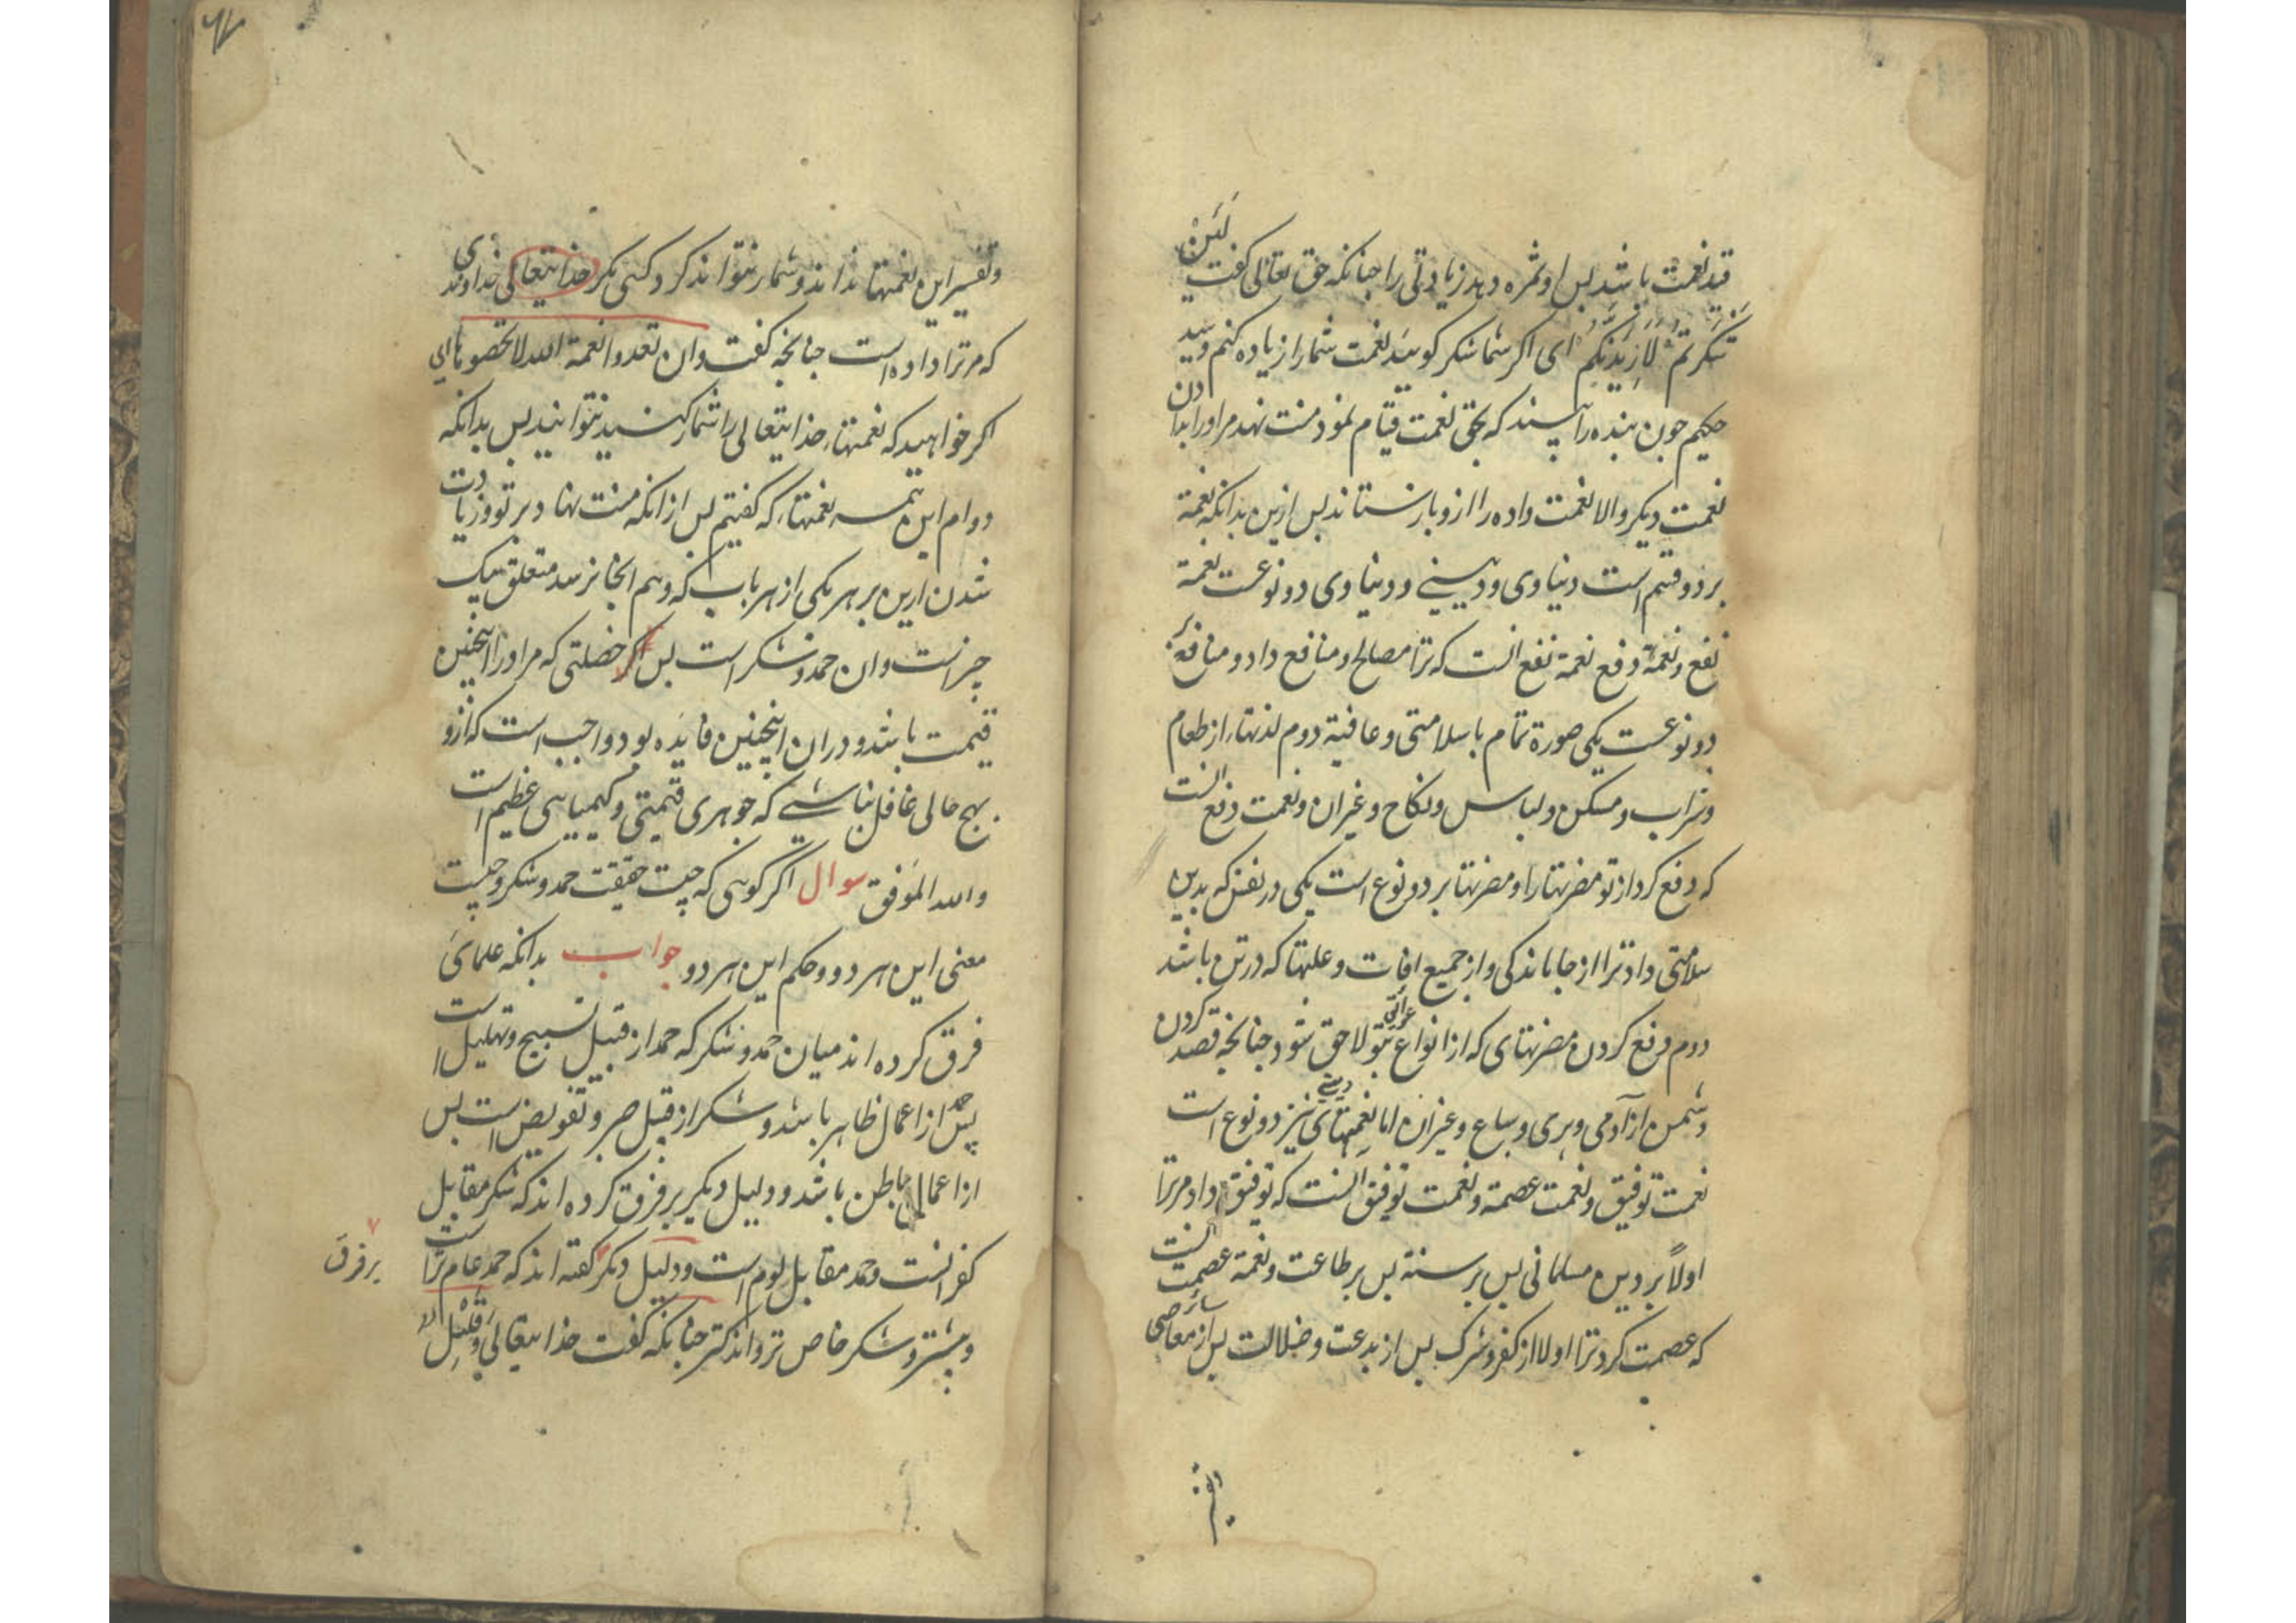 قید نعمت باشد پس او ثمره دهد زیادتی را چنانکه حق تعالی گفت لَئِن
شَکَرتُم لَاَزِیدَنَّکُم ای اگر شما شکر گویید نعمت شما را زیاده کنم و سید
حکیم چون بنده را بیند که بحق نعمت قیام نمود منت نهد مر اورا بدادن
نعمت دیگر والا نعمت داده را ازو بازستاند پس ازین بدانکه نعمة
بر دو قسم است دنیاوی و دینی و دنیاوی دو نوعست نعمة
نفع و نعمة دفع نعمة نفع انست که ترا مصالح و منافع داد و منافع بر
دو نوعست یکی صورة تمام با سلامتی و عافیة دوم لذتهاء از طعام
و شراب و مسکن و لباس و نکاح و غیران و نعمت دفع انست
که دفع کرد از تو مضرتها را و مضرتها بر دو نوع است یکی در نفس که بدین
سلامتی داد ترا از جا باندکی و از جمیع افات و علتها که در تن باشد
دوم دفع کردن مضرتهای که از انواع عوائق بتو لاحق شود چنانچه قصد کردن
دشمن از آدمی و پری و سباع و غیران اما نعمتهای دینی نیز دو نوع است
نعمت توفیق و نعمت عصمة و نعمت توفیق انست که توفیق داد مر ترا
اولاً بر دین مسلمانی پس بر سنة پس بر طاعت و نعمة عصمت انست
که عصمت کرد ترا اولا از کفر و شرک پس از بدعت و ضلالت پس از سائر معاصی
و تفسیر این نعمتها ندانند و شمار نتوانند کرد کسی مگر خدایتعالی خداوندی
که مر ترا داده است چنانچه گفت وان تعدوا نعمة الله لا تحصوها ای
اگر خواهید که نعمتهاء خدایتعالی را شمار کنید نتوانید پس بدانکه
دوام این همه نعمتهاء که گفتیم پس از انکه منت نهاد بر تو و زیادت
شدن ازین بر هر یکی از هر باب که وهم انجا نرسد متعلق بیک
چیزاست وان حمد و شکر است پس اگر خصلتی که مر اورا اینچنین
قیمت باشد و دران اینچنین فایده بود واجب است که ازو
بهیچ حالی غافل نباشے که جوهری قیمتی و کیمیایی عظیم است
والله الموفق سوال اگر گویی که چیست حقیقت حمد و شکر و چیست
معنی این هر دو و حکم این هر دو جواب بدانکه علمای
فرق کرده اند میان حمد و شکر که حمد از قبیل تسبیح و تهلیل است
پس حمد از اعمال ظاهر باشد و شکر از قبیل صبر و تفویض است پس
از اعمال باطن باشد و دلیل دیگر بر فرق کرده اند که شکر مقابل
کفر انست و حمد مقابل لوم است و دلیل دیگر گفته اند که حمد عام تراست
بر فرق
و بیشتر و شکر خاص تر و اندکتر چنانکه گفت خدایتعالی وَقَلِیل